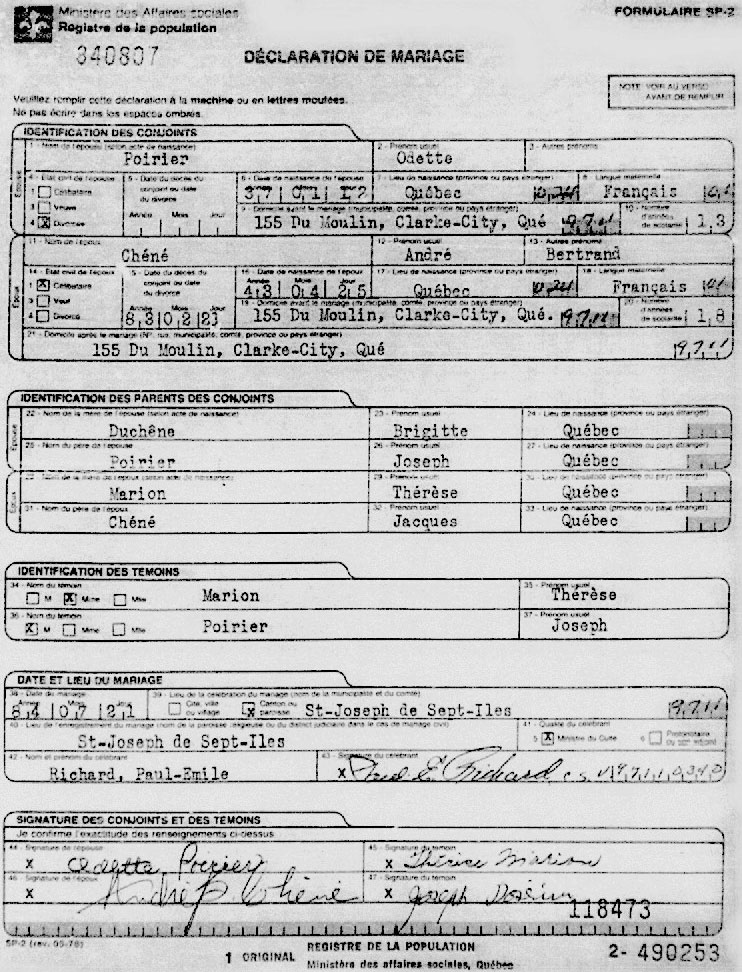 Ministère des Affaires sociales
Registre de la population
FORMULAIRE SP-2
340807
DÉCLARATION DE MARIAGE
NOTE VOIR AU VERSO
AVANT DE REMPLIR
Veuillez remplir cette déclaration à la machine ou en lettres moulées.
Ne pas écrire dans les espaces ombrés.
IDENTIFICATION DES CONJOINTS
Épouse
1 - Nom de l'épouse (selon acte de naissance) 2 - Prénom usuel 3 - Autres prénoms
Poirier Odette
4 - État civil de l'épouse 5 - Date du décès du conjoint ou date du divorce 6 - Date de naissance de l'épouse 7 - Lieu de naissance (province ou pays étranger) 8 - Langue maternelle
1 Célibataire 37 01 12 Québec Français
3 Veuve Année Mois Jour 9 - Domicile avant le mariage (municipalité, comté, province ou pays étranger) 10 - Nombre d'années de scolarité
4 X Divorcée 155 Du Moulin, Clarke-City, Qué 9711 1,3
Époux
11 - Nom de l'époux 12 - Prénom usuel 13 - Autres prénoms
Chéné André Bertrand
14 - État civil de l'époux 15 - Date du décès du conjoint ou date du divorce 16 - Date de naissance de l'époux 17 - Lieu de naissance (province ou pays étranger) 18 - Langue maternelle
1 X Célibataire 43 04 25 Québec Français
3 Veuf Année Mois Jour 19 - Domicile avant le mariage (municipalité, comté, province ou pays étranger) 20 - Nombre d'années de scolarité
4 Divorcé 83 02 23 155 Du Moulin, Clarke-City, Qué. 9711 1,8
21 - Domicile après le mariage (N°, rue, municipalité, comté, province ou pays étranger)
155 Du Moulin, Clarke-City, Qué 9711
IDENTIFICATION DES PARENTS DES CONJOINTS
Épouse
22 - Nom de la mère de l'épouse (selon acte de naissance) 23 - Prénom usuel 24 - Lieu de naissance (province ou pays étranger)
Duchêne Brigitte Québec
25 - Nom du père de l'épouse 26 - Prénom usuel 27 - Lieu de naissance (province ou pays étranger)
Poirier Joseph Québec
Époux
28 - Nom de la mère de l'époux (selon acte de naissance) 29 - Prénom usuel 30 - Lieu de naissance (province ou pays étranger)
Marion Thérèse Québec
31 - Nom du père de l'époux 32 - Prénom usuel 33 - Lieu de naissance (province ou pays étranger)
Chéné Jacques Québec
IDENTIFICATION DES TEMOINS
34 - Nom du témoin 35 - Prénom usuel
M X Mme Mlle Marion Thérèse
36 - Nom du témoin 37 - Prénom usuel
X M Mme Mlle Poirier Joseph
DATE ET LIEU DU MARIAGE
38 - Date du mariage 39 - Lieu de la célébration du mariage (nom de la municipalité et du comté)
Année Mois Jour
84 07 21 Cité, ville ou village X Canton ou paroisse St-Joseph de Sept-Iles 9711
40 - Lieu de l'enregistrement du mariage (nom de la paroisse religieuse ou du district judiciaire dans le cas de mariage civil) 41 - Qualité du célébrant
St-Joseph de Sept-Iles 5 X Ministre du Culte 6 Protonotaire ou son adjoint
42 - Nom et prénom du célébrant 43 - Signature du célébrant
Richard, Paul-Emile X Paul E. Richard c.s.v.
SIGNATURE DES CONJOINTS ET DES TÉMOINS
Je confirme l'exactitude des renseignements ci-dessus
44 - Signature de l'épouse 45 - Signature du témoin
X Odette Poirier X Thérèse Marion
46 - Signature de l'époux 47 - Signature du témoin
X André B Chéné X Joseph
118473
SP-2 (rev. 05-78)
1 ORIGINAL
REGISTRE DE LA POPULATION
Ministère des affaires sociales, Québec
2- 490253